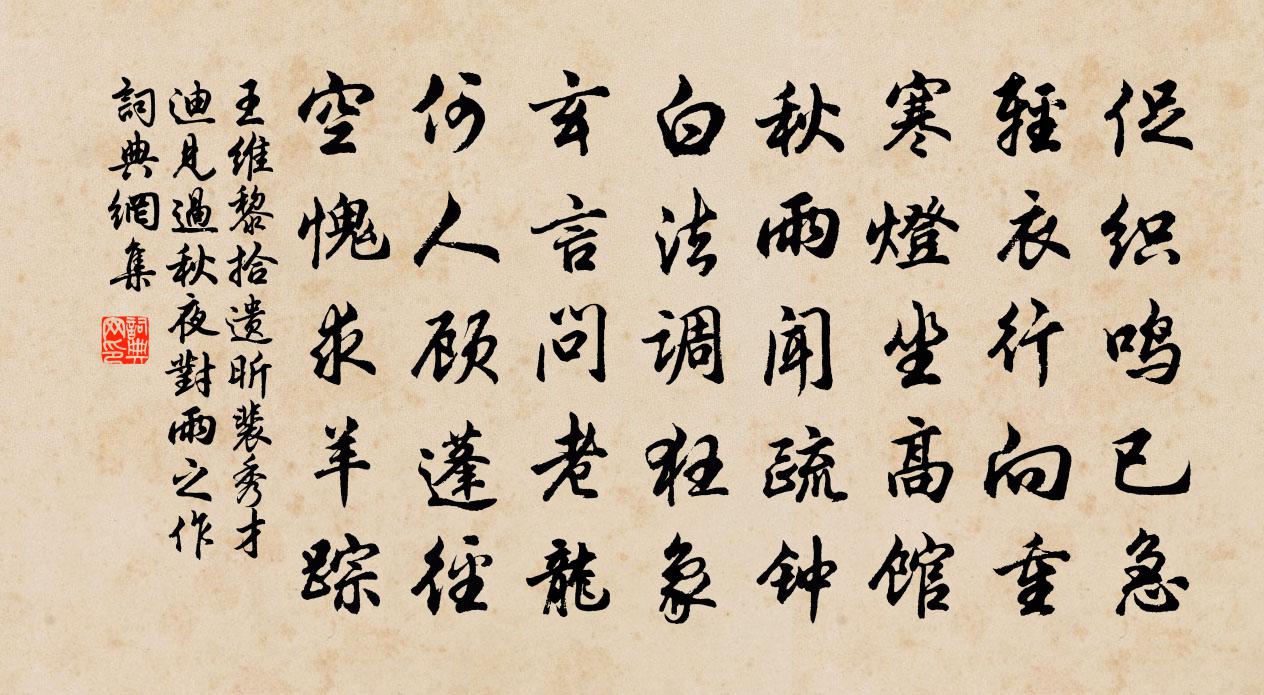 促织鸣已急
輕衣行向重
寒燈坐高館
秋雨闻疏钟
白法调狂象
玄言问老龍
何人顾蓬徑
空愧求羊踪
王維黎拾遗昕裴秀才
迪見過秋夜對雨之作
詞典網集
詞典网印